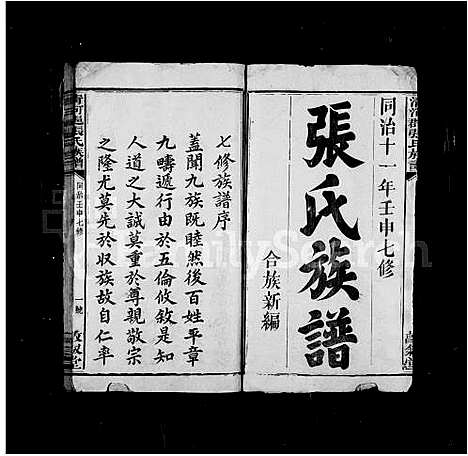 同治十一年壬申七修
張氏族譜
合族新編
七修族譜序
蓋聞九族既睦然後百姓平章
九疇遞行由於五倫攸敘是知
人道之大誠莫重於尊親敬宗
之隆尤莫先於収族故自仁率
張氏族譜
同治壬申七修
一號
敦叙堂
FamilySearch